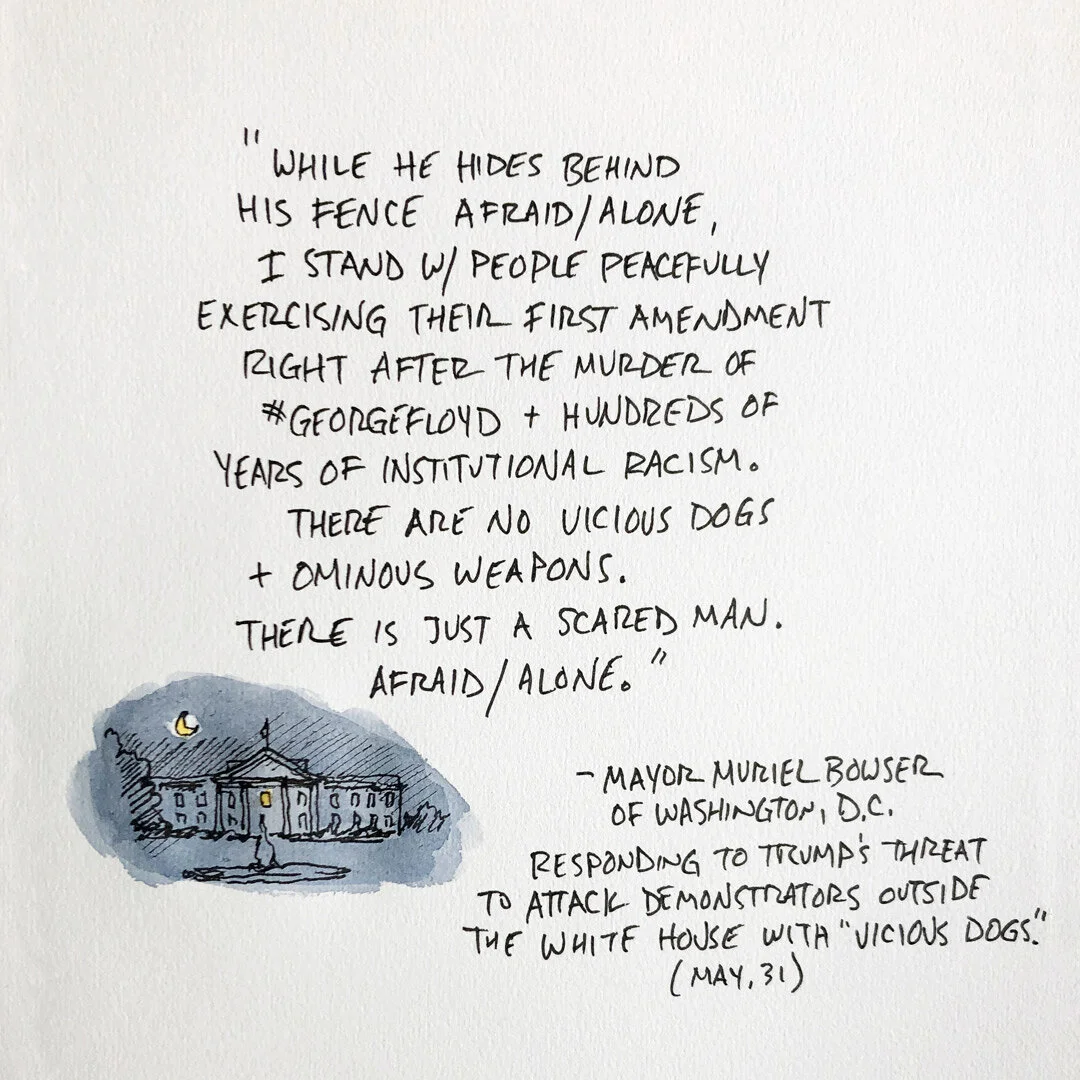 "WHILE HE HIDES BEHIND
HIS FENCE AFRAID/ALONE,
I STAND W/ PEOPLE PEACEFULLY
EXERCISING THEIR FIRST AMENDMENT
RIGHT AFTER THE MURDER OF
#GEORGEFLOYD + HUNDREDS OF
YEARS OF INSTITUTIONAL RACISM.
THERE ARE NO VICIOUS DOGS
+ OMINOUS WEAPONS.
THERE IS JUST A SCARED MAN.
AFRAID/ALONE."
- MAYOR MURIEL BOWSER
OF WASHINGTON, D.C.
RESPONDING TO TRUMP'S THREAT
TO ATTACK DEMONSTRATORS OUTSIDE
THE WHITE HOUSE WITH "VICIOUS DOGS."
(MAY, 31)